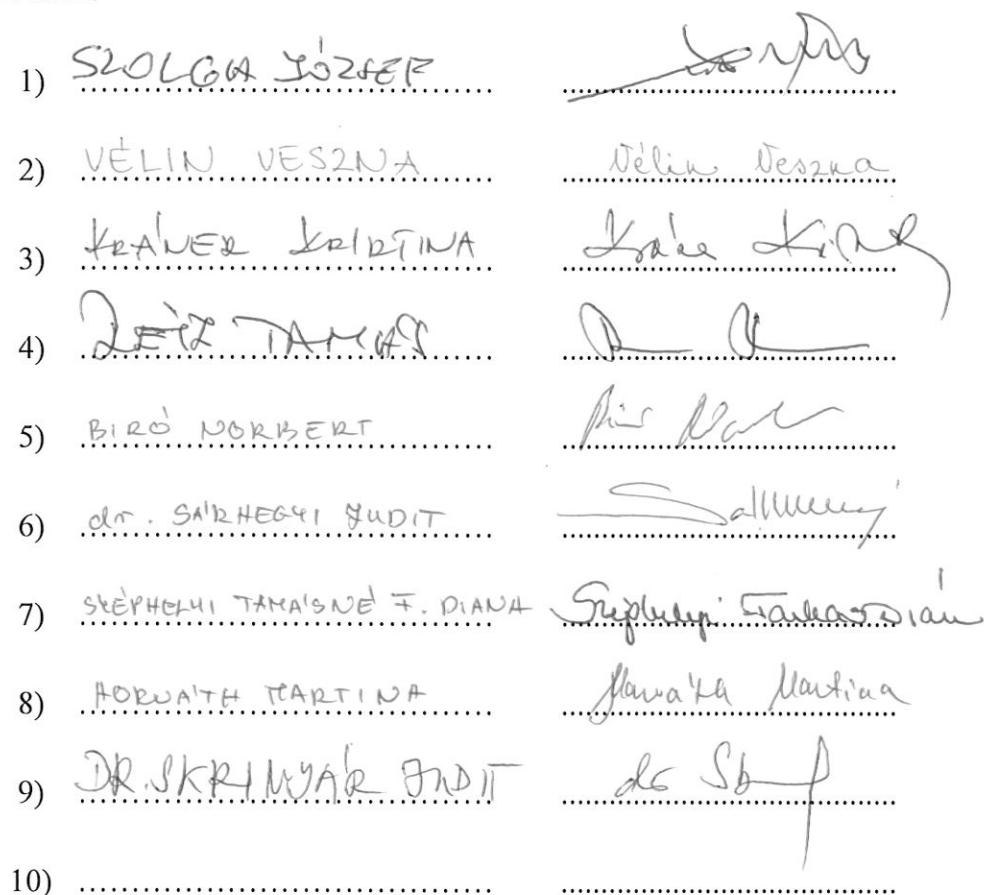 1) SZOLGA JÓZSEF
2) VÉLIN VESZNA Vélin Veszna
3) KRÁNER KRISTINA
4) ZEITZ TAMÁS
5) BIRÓ NORBERT
6) dr. SÁRHEGYI JUDIT
7) SZÉPHELYI TAMÁSNÉ F. DIANA Széphelyi Farkas Dián
8) HORVÁTH MARTINA Horváth Martina
9) DR. SKRINYÁR JUDIT
10)